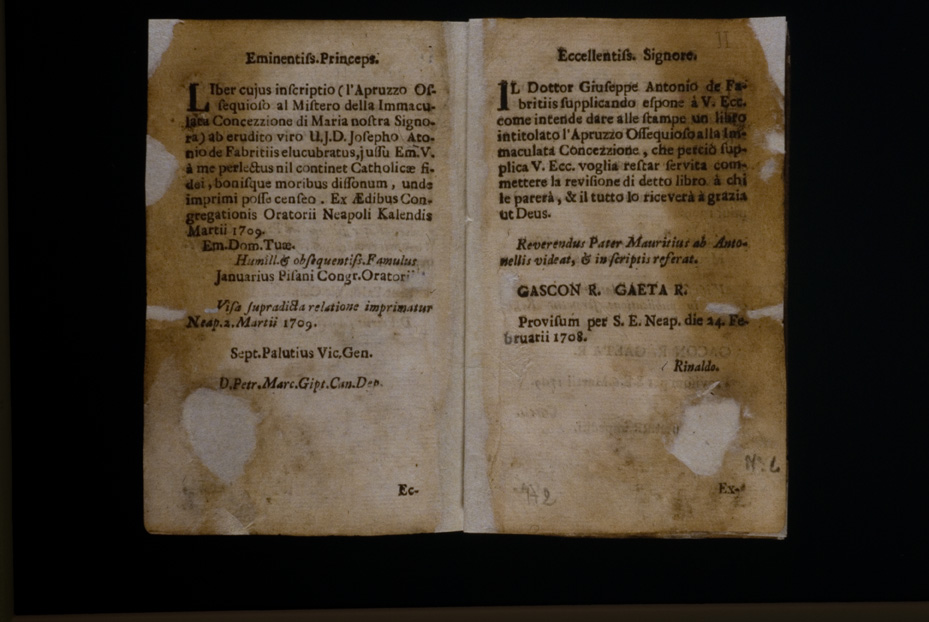 Eminentiſs.Princeps.
LIber cujus inſcriptio ( l'Apruzzo Oſ-
ſequioſo al Miſtero della Immacu-
lata Concezzione di Maria noſtra Signo-
ra) ab erudito viro U.J.D. Joſepho Ato-
nio de Fabritiis elucubratus, juſſu Em. V.
à me perlectus nil continet Catholicæ fi-
dei , boniſque moribus diſſonum , unde
imprimi poſſe cenſeo . Ex Ædibus Con-
gregationis Oratorii Neapoli Kalendis
Martii 1709.
Em.Dom.Tuæ.
Humill.& obſequentiſs.Famulus
Januarius Piſani Congr.Oratorii
Viſa ſupradicta relatione imprimatur
Neap.2.Martii 1709.
Sept.Palutius Vic.Gen.
D.Petr.Marc.Gipt.Can.Dep.
Ec-
Eccellentiſs. Signore.
IL Dottor Giuſeppe Antonio de Fa-
britiis ſupplicando eſpone à V. Ecc.
come intende dare alle ſtampe un libro
intitolato l'Apruzzo Oſſequioſo alla Im-
maculata Concezzione , che perciò ſup-
plica V. Ecc. voglia reſtar ſervita com-
mettere la reviſione di detto libro à chi
le parerà , & il tutto lo riceverà à grazia
ut Deus.
Reverendus Pater Mauritius ab Anto-
nellis videat, & in ſcriptis referat.
GASCON R. GAETA R.
Proviſum per S. E. Neap. die 24. Fe-
bruarii 1708.
Rinaldo.
Ex-